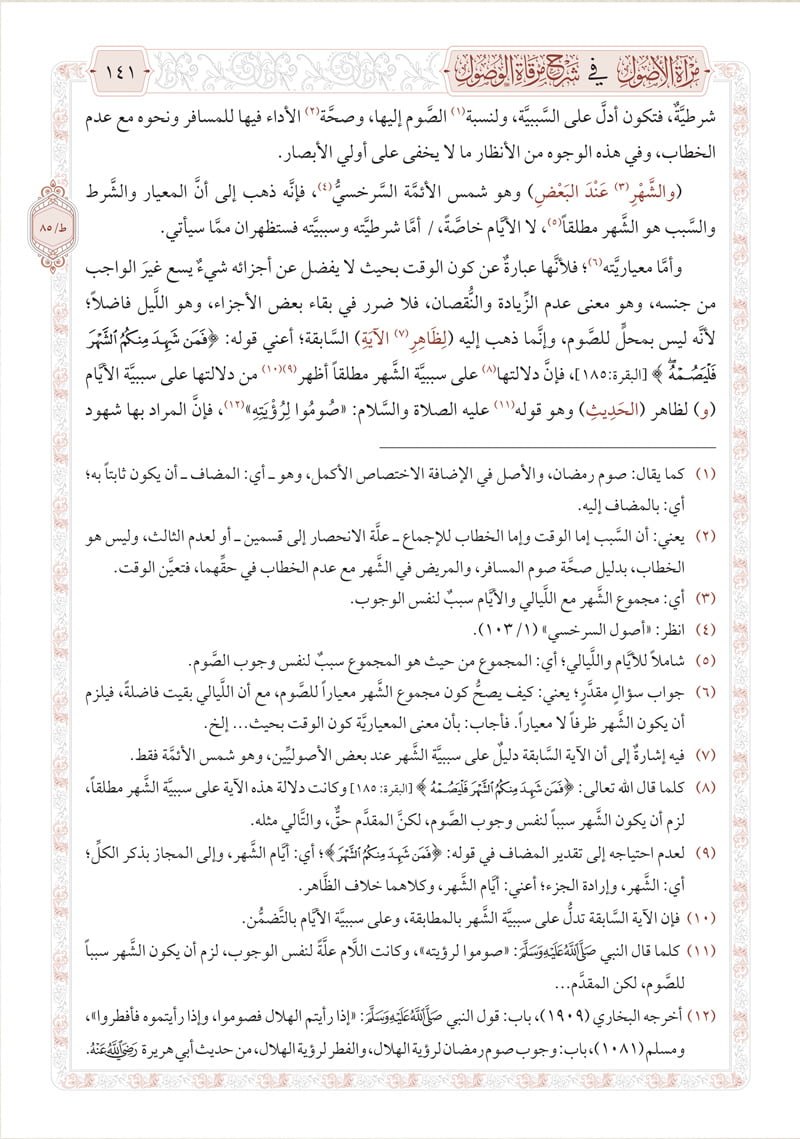 مرآة الأصول في شرح مرقاة الوصول
١٤١
شرطيَّةٌ، فتكون أدلَّ على السَّببيَّة، ولنسبة(١) الصَّوم إليها، وصحَّة(٢) الأداء فيها للمسافر ونحوه مع عدم
الخطاب، وفي هذه الوجوه من الأنظار ما لا يخفى على أولي الأبصار.
(والشَّهْرِ(٣) عَنْدَ البَعْضِ) وهو شمس الأئمَّة السَّرخسيُّ(٤)، فإنَّه ذهب إلى أنَّ المعيار والشَّرط
والسَّبب هو الشَّهر مطلقاً(٥)، لا الأيَّام خاصَّةً، / أمَّا شرطيَّته وسببيَّته فستظهران ممَّا سيأتي.
ط/ ٨٥
وأمَّا معياريَّته(٦)؛ فلأنَّها عبارةٌ عن كون الوقت بحيث لا يفضل عن أجزائه شيءٌ يسع غيرَ الواجب
من جنسه، وهو معنى عدم الزِّيادة والنُّقصان، فلا ضرر في بقاء بعض الأجزاء، وهو اللَّيل فاضلاً؛
لأنَّه ليس بمحلٍّ للصَّوم، وإنَّما ذهب إليه (لِظَاهِرِ(٧) الآيَةِ) السَّابقة؛ أعني قوله: ﴿فَمَن شَهِدَ مِنكُمُ ٱلشَّهْرَ
فَلْيَصُمْهُ ۖ﴾ [البقرة:١٨٥]، فإنَّ دلالتها(٨) على سببيَّة الشَّهر مطلقاً أظهر(٩)(١٠) من دلالتها على سببيَّة الأيَّام
(و) لظاهر (الحَدِيثِ) وهو قوله(١١) عليه الصلاة والسَّلام: «صُومُوا لِرُؤْيَتِهِ»(١٢)، فإنَّ المراد بها شهود
(١) كما يقال: صوم رمضان، والأصل في الإضافة الاختصاص الأكمل، وهو ـ أي: المضاف ـ أن يكون ثابتاً به؛
أي: بالمضاف إليه.
(٢) يعني: أن السَّبب إما الوقت وإما الخطاب للإجماع ـ علَّة الانحصار إلى قسمين ـ أو لعدم الثالث، وليس هو
الخطاب، بدليل صحَّة صوم المسافر، والمريض في الشَّهر مع عدم الخطاب في حقِّهما، فتعيَّن الوقت.
(٣) أي: مجموع الشَّهر مع اللَّيالي والأيَّام سببٌ لنفس الوجوب.
(٤) انظر: «أصول السرخسي» (١/ ١٠٣).
(٥) شاملاً للأيَّام واللَّيالي؛ أي: المجموع من حيث هو المجموع سببٌ لنفس وجوب الصَّوم.
(٦) جواب سؤالٍ مقدَّرٍ؛ يعني: كيف يصحُّ كون مجموع الشَّهر معياراً للصَّوم، مع أن اللَّيالي بقيت فاضلةً، فيلزم
أن يكون الشَّهر ظرفاً لا معياراً. فأجاب: بأن معنى المعياريَّة كون الوقت بحيث... إلخ.
(٧) فيه إشارةٌ إلى أن الآية السَّابقة دليلٌ على سببيَّة الشَّهر عند بعض الأصوليِّين، وهو شمس الأئمَّة فقط.
(٨) كلما قال الله تعالى: ﴿فَمَن شَهِدَ مِنكُمُ ٱلشَّهْرَ فَلْيَصُمْهُ ﴾ [البقرة: ١٨٥] وكانت دلالة هذه الآية على سببيَّة الشَّهر مطلقاً،
لزم أن يكون الشَّهر سبباً لنفس وجوب الصَّوم، لكنَّ المقدَّم حقٌّ، والتَّالي مثله.
(٩) لعدم احتياجه إلى تقدير المضاف في قوله: ﴿فَمَن شَهِدَ مِنكُمُ ٱلشَّهْرَ﴾؛ أي: أيَّام الشَّهر، وإلى المجاز بذكر الكلِّ؛
أي: الشَّهر، وإرادة الجزء؛ أعني: أيَّام الشَّهر، وكلاهما خلاف الظَّاهر.
(١٠) فإن الآية السَّابقة تدلُّ على سببيَّة الشَّهر بالمطابقة، وعلى سببيَّة الأيَّام بالتَّضمُّن.
(١١) كلما قال النبي صَلَّىٰاللَّهُعَلَيْهِوَسَلَّمَ: «صوموا لرؤيته»، وكانت اللَّام علَّةً لنفس الوجوب، لزم أن يكون الشَّهر سبباً
للصَّوم، لكن المقدَّم...
(١٢) أخرجه البخاري (١٩٠٩)، باب: قول النبي صَلَّىٰاللَّهُعَلَيْهِوَسَلَّمَ: «إذا رأيتم الهلال فصوموا، وإذا رأيتموه فأفطروا»،
ومسلم (١٠٨١)، باب: وجوب صوم رمضان لرؤية الهلال، والفطر لرؤية الهلال، من حديث أبي هريرة رَضِيَاللَّهُعَنْهُ.